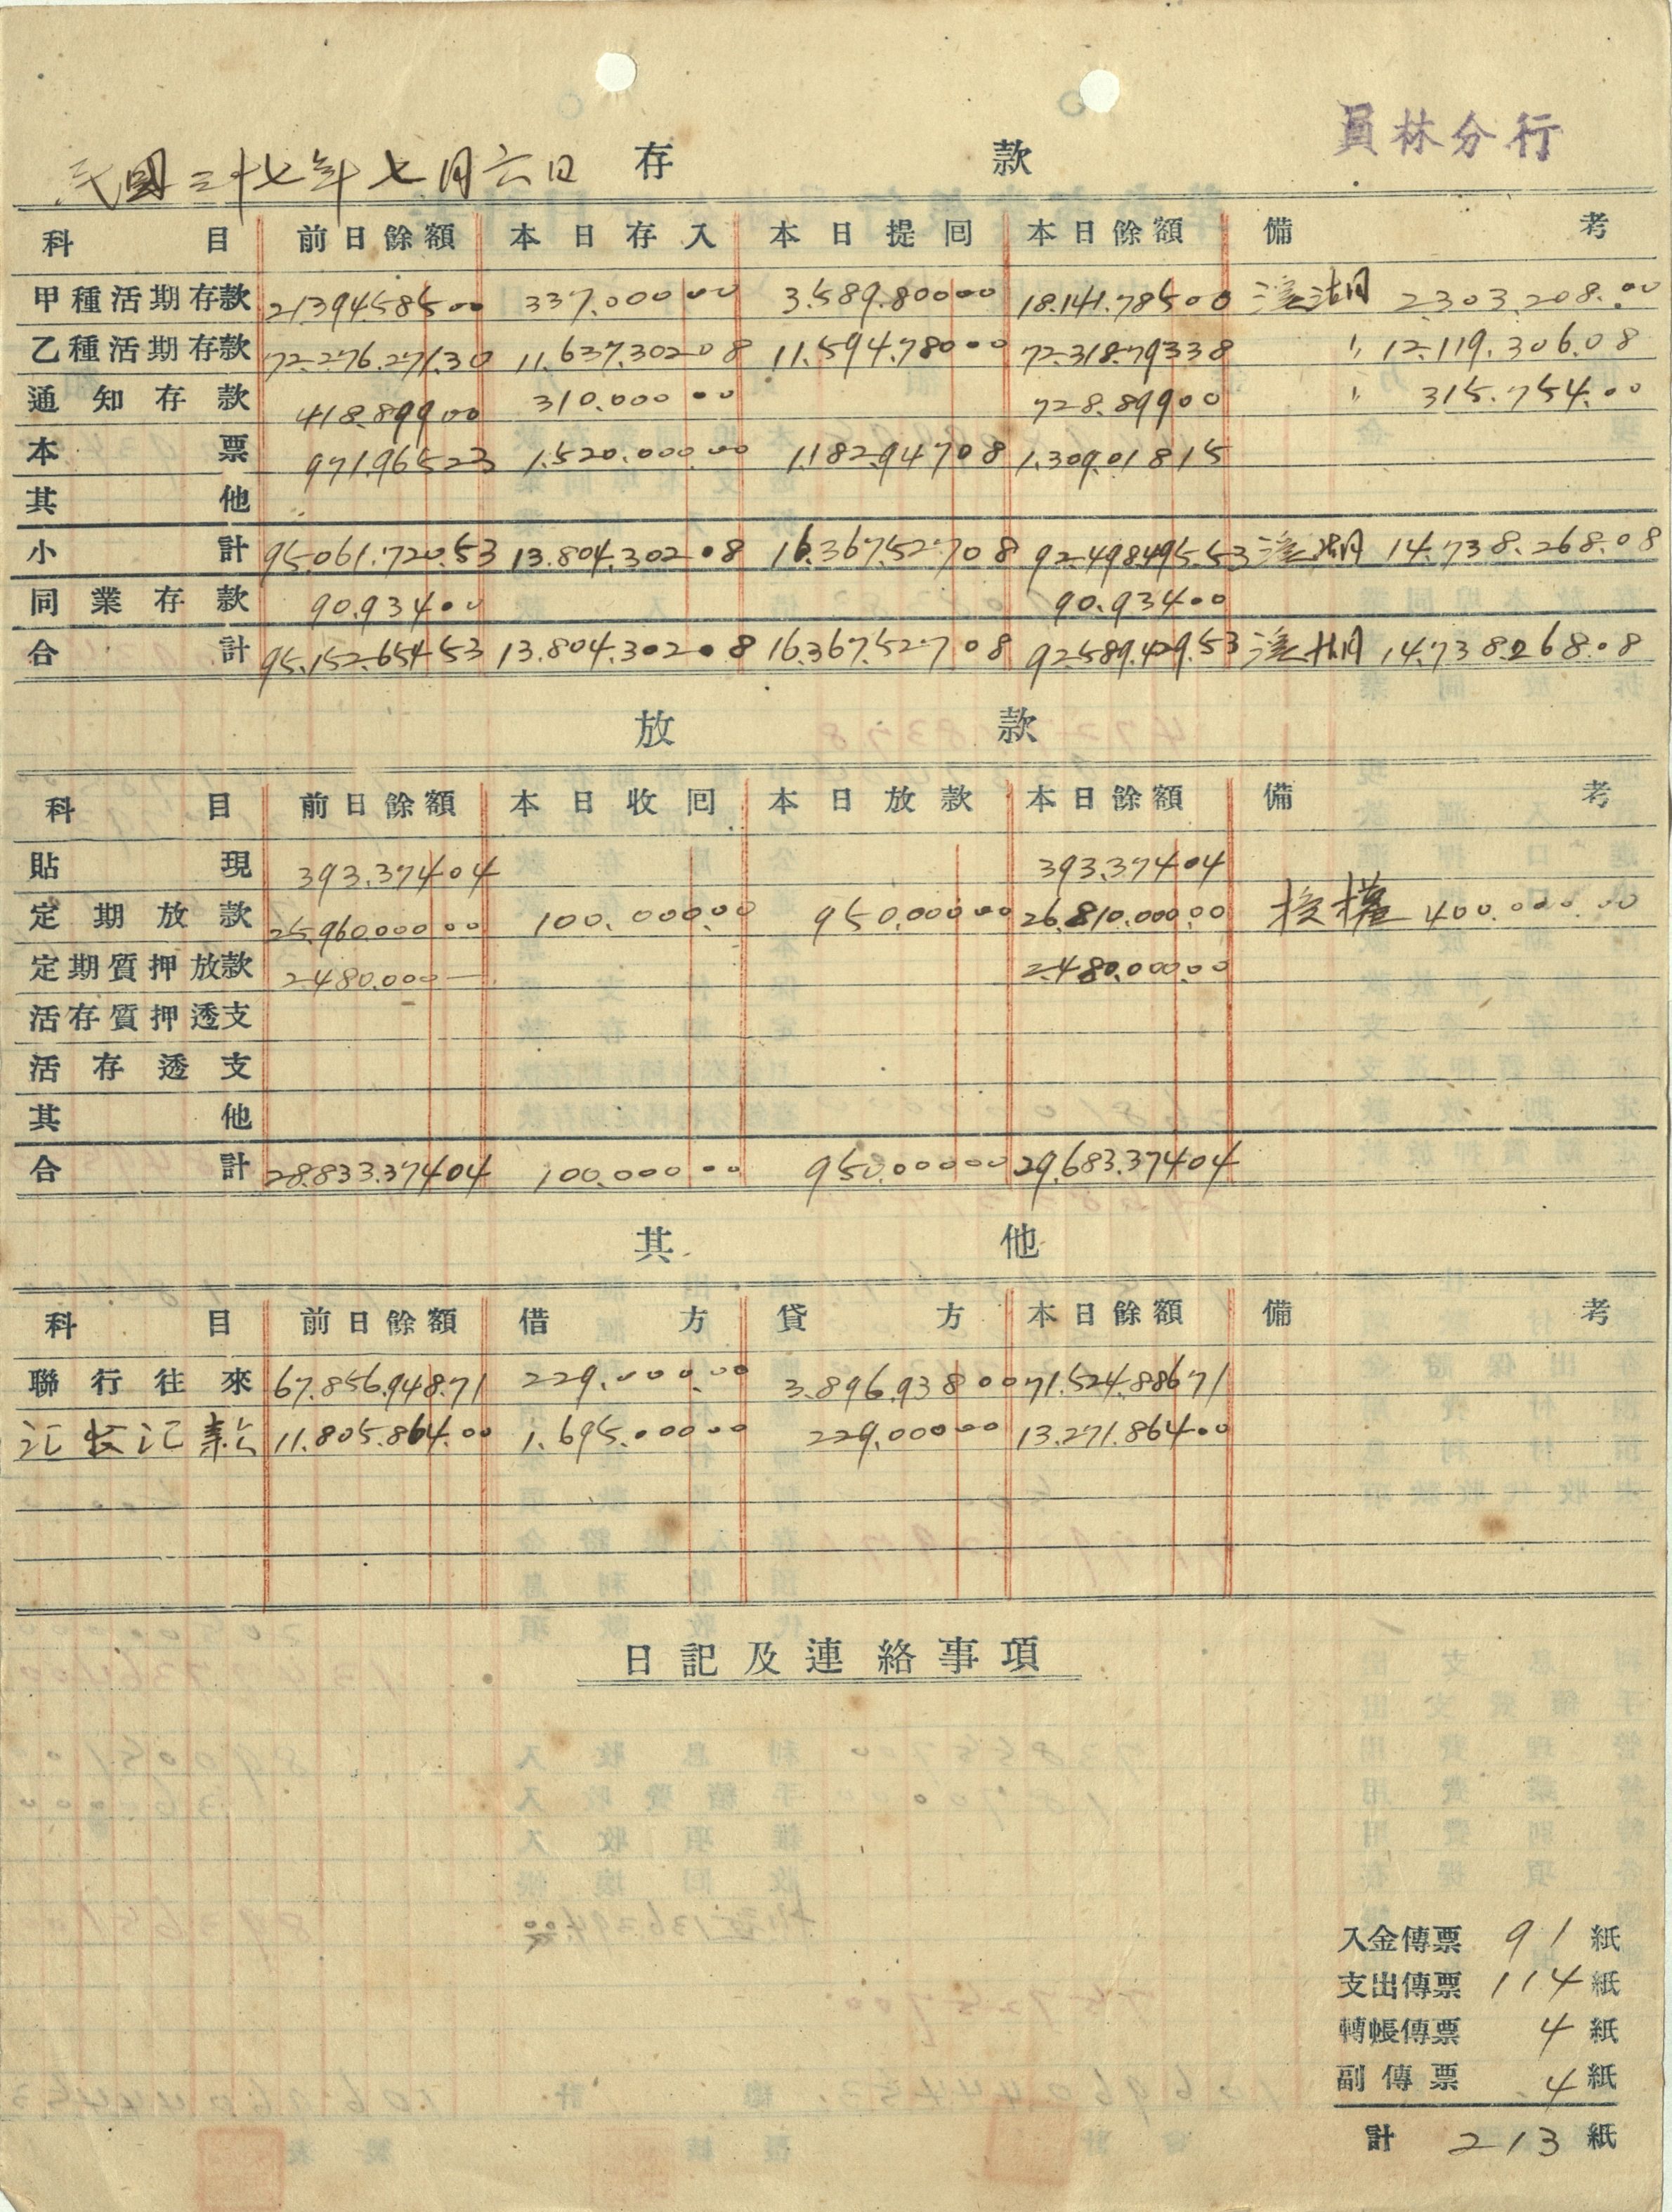 員林分行
民國三十七年七月六日 存款
科目 前日餘額 本日存入 本日提囘 本日餘額 備考
甲種活期存款 21.394.585.00 337.000.00 3.589.800.00 18.141.785.00 溪湖 2.303.208.00
乙種活期存款 72.276.271.30 11.637.302.08 11.594.780.00 72.318.793.38 〃 12.119.306.08
通知存款 418.899.00 310.000.00 728.899.00 〃 315.754.00
本票 971.965.23 1.520.000.00 1.182.947.08 1.309.018.15
其他
小計 95.061.720.53 13.804.302.08 16.367.527.08 92.498.495.53 溪湖 14.738.268.08
同業存款 90.934.00 90.934.00
合計 95.152.654.53 13.804.302.08 16.367.527.08 92.589.429.53 溪湖 14.738.268.08
放款
科目 前日餘額 本日收囘 本日放款 本日餘額 備考
貼現 393.374.04 393.374.04
定期放款 25.960.000.00 100.000.00 950.000.00 26.810.000.00 授權 400.000.00
定期質押放款 2.480.000— 2.480.000.00
活存質押透支
活存透支
其他
合計 28.833.374.04 100.000.00 950.000.00 29.683.374.04
其他
科目 前日餘額 借方 貸方 本日餘額 備考
聯行往來 67.856.948.71 229.000.00 3.896.938.00 71.524.886.71
汇款 11.805.864.00 1.695.000.00 229.000.00 13.271.864.00
日記及連絡事項
入金傳票 91 紙
支出傳票 114 紙
轉帳傳票 4 紙
副傳票 4 紙
計 213 紙